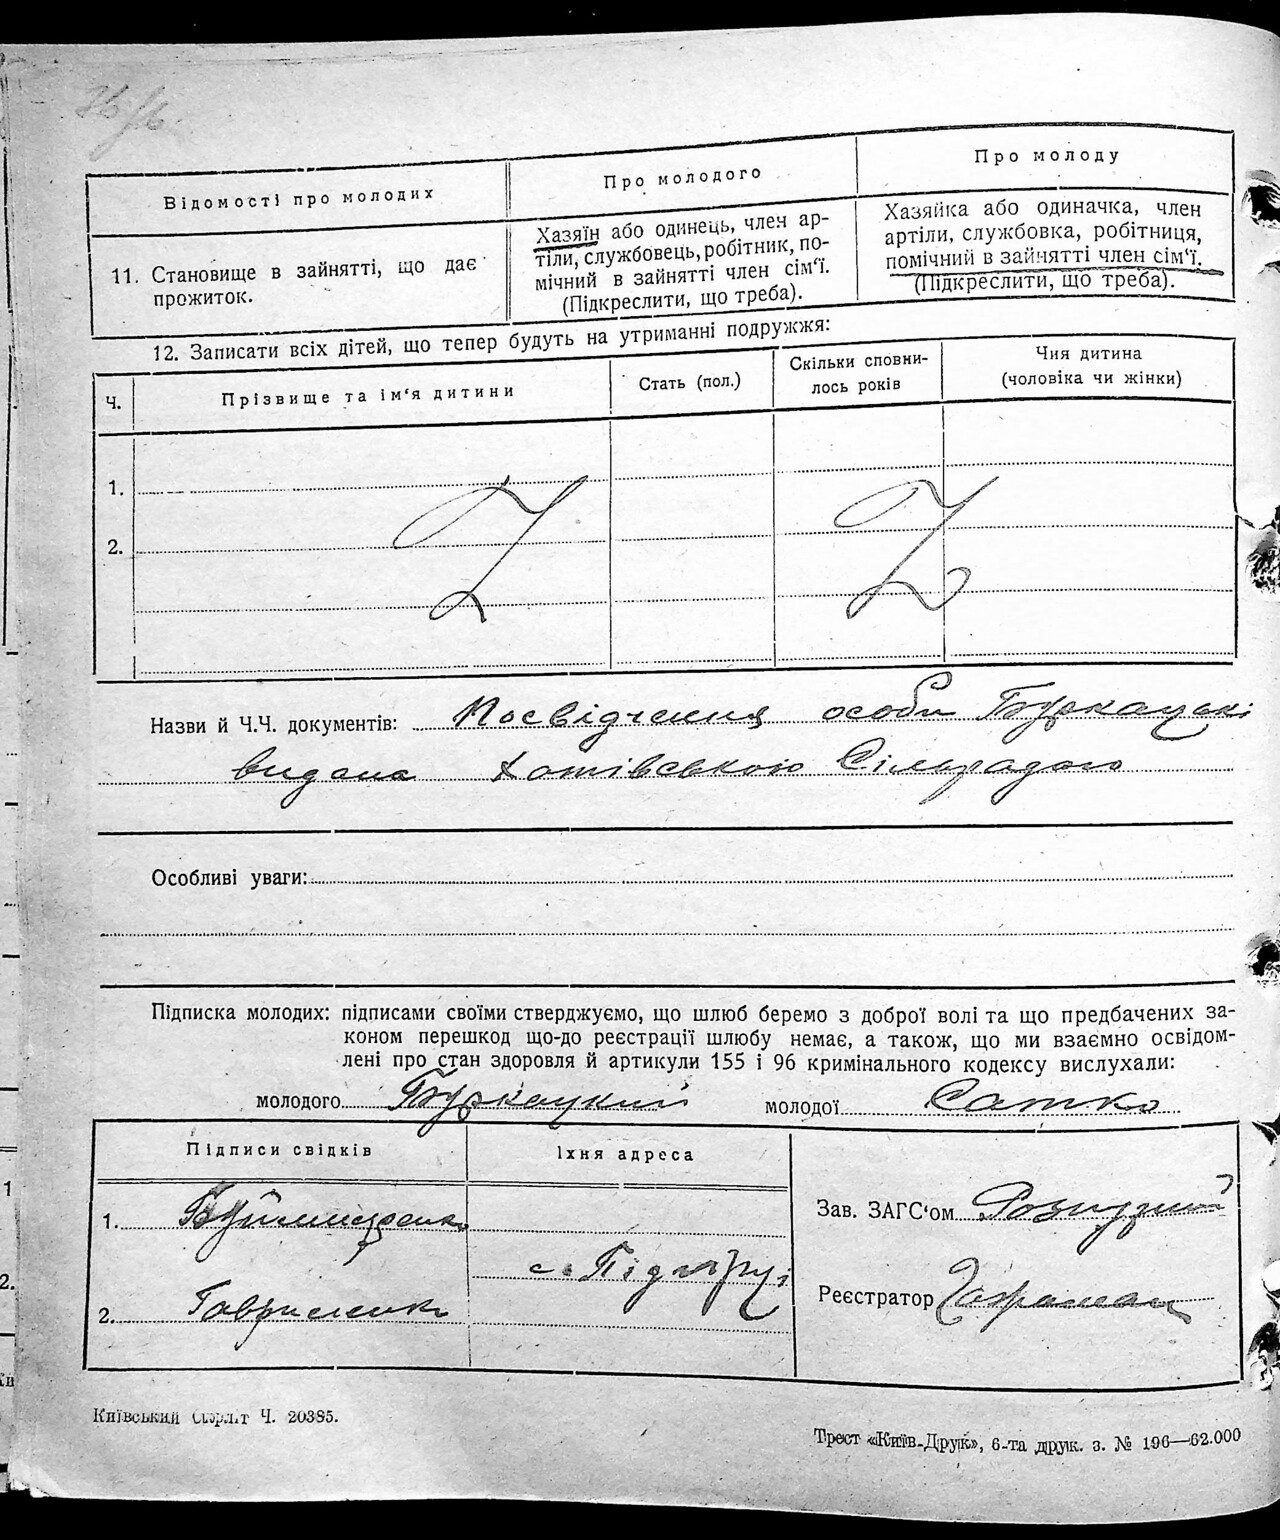 Відомості про молодих
Про молодого
Про молоду
11. Становище в зайнятті, що дає
прожиток.
Хазяїн або одинець, член ар-
тіли, службовець, робітник, по-
мічний в зайнятті член сім'ї.
(Підкреслити, що треба).
Хазяйка або одиначка, член
артіли, службовка, робітниця,
помічний в зайнятті член сім'ї.
(Підкреслити, що треба).
12. Записати всіх дітей, що тепер будуть на утриманні подружжя:
Ч.
Прізвище та ім'я дитини
Стать (пол.)
Скільки сповни-
лось років
Чия дитина
(чоловіка чи жінки)
1.
2.
Назви й Ч.Ч. документів: Посвідчення особи
видана Хотівською Сільрадою
Особливі уваги:
Підписка молодих: підписами своїми стверджуємо, що шлюб беремо з доброї волі та що предбачених за-
коном перешкод що-до реєстрації шлюбу немає, а також, що ми взаємно освідом-
лені про стан здоровля й артикули 155 і 96 кримінального кодексу вислухали:
молодого Буркацкий молодої Сатко
Підписи свідків
Їхня адреса
1.
с. Підгірці
2. Гавриленко
Зав. ЗАГС'ом
Реєстратор
Київський Окрліт Ч. 20385.
Трест «Київ-Друк», 6-та друк. з. № 196—62.000